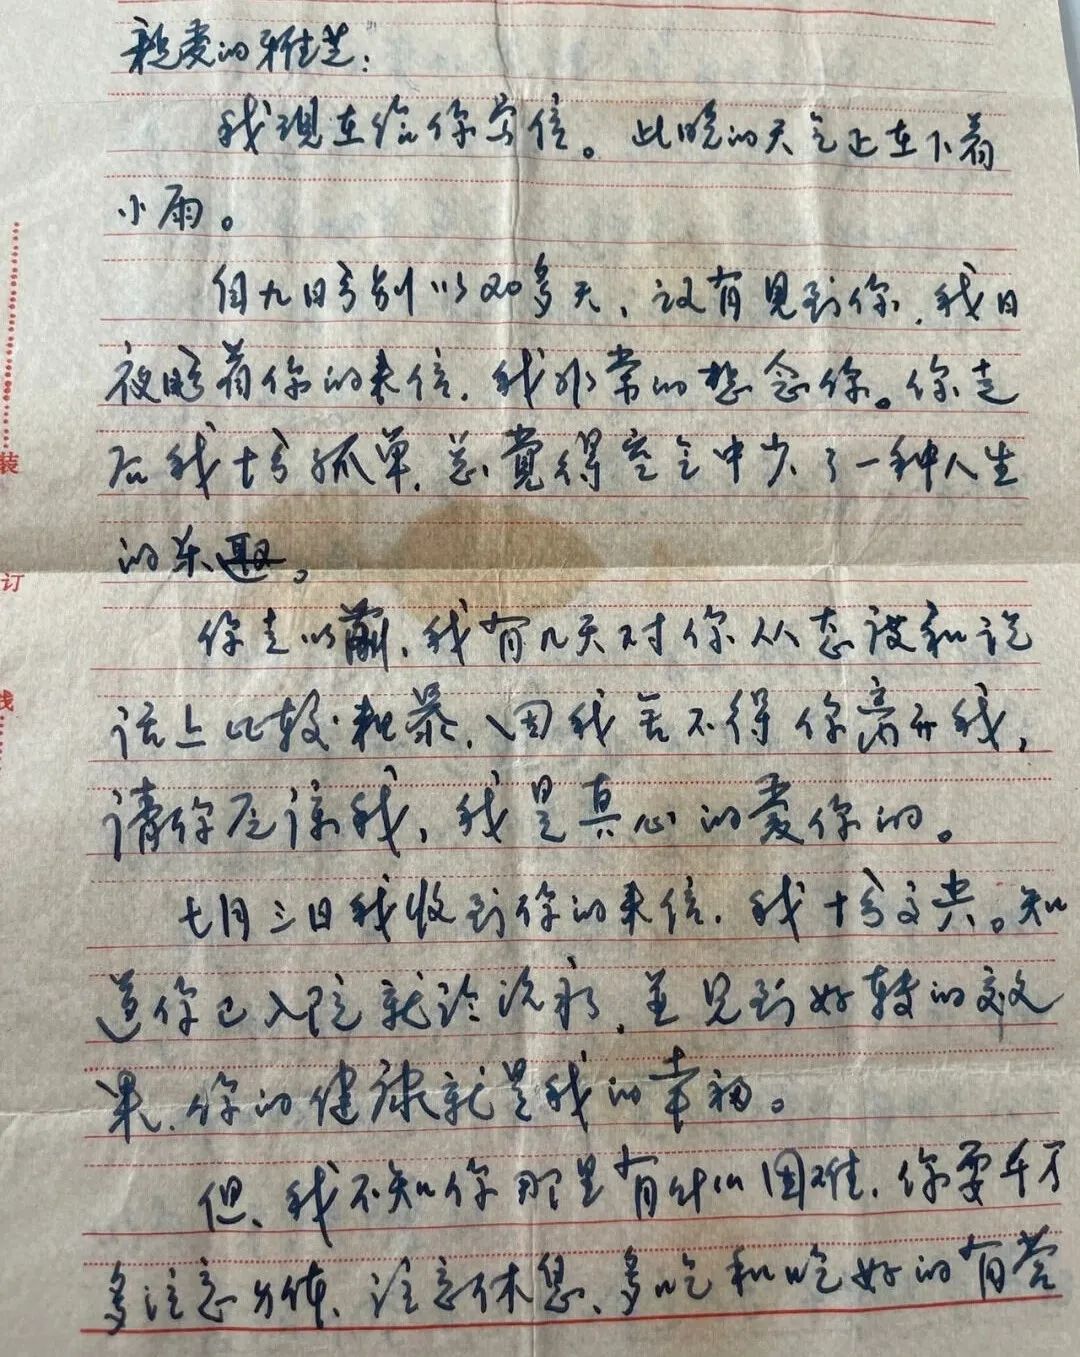 親爱的雅芝：
我现在给你写信。此晚的天气正在下着
小雨。
自九日分别以20多天，没有見到你，我日
夜盼着你的来信，我非常的想念你。你走
后我十分孤单，总覺得空气中少了一种人生
的乐趣。
你走以前，我有几天对你从态度和说
话上比较粗暴，因我舍不得你离开我，
請你原谅我，我是真心的爱你的。
七月三日我收到你的来信，我十分高兴。知
道你已入院就诊治疗，並見到好转的效
果，你的健康就是我的幸福。
但，我不知你那里有什么困难，你要千万
多注意身体、注意休息、多吃和吃好的有营
装
订
线